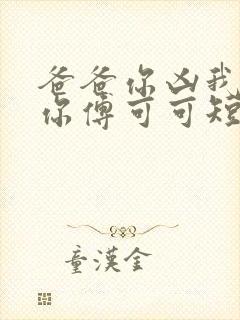 爸爸你凶我
你傅可可短
童漢金